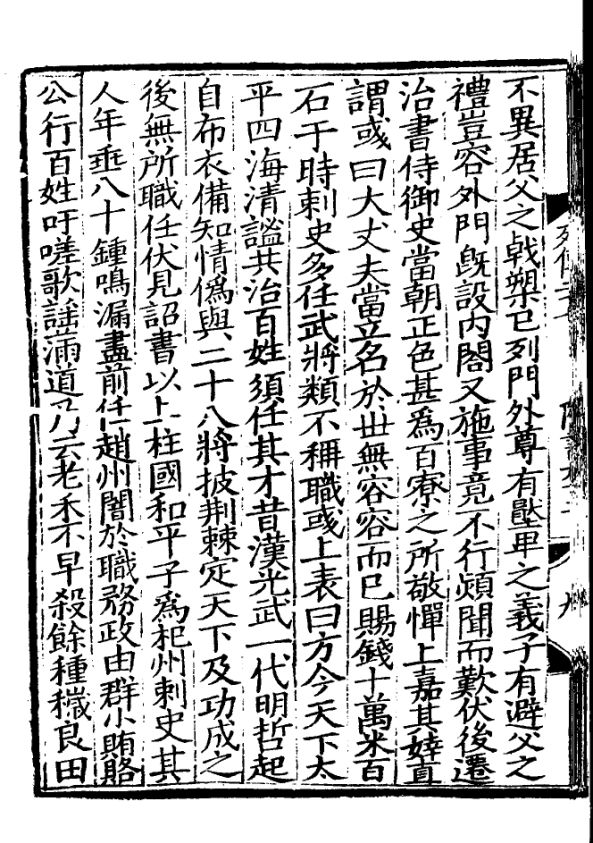 不異居父之戟槊已列門外尊有壓卑之義子有避父之
禮豈容外門旣設內閤又施事竟不行熲聞而歎伏後遷
治書侍御史當朝正色甚爲百寮之所敬憚上嘉其婞直
謂彧曰大丈夫當立名於世無容容而已賜錢十萬米百
石于時刺史多任武將類不稱職彧上表曰方今天下太
平四海清謐共治百姓須任其才昔漢光武一代明哲起
自布衣備知情僞與二十八將披荆棘定天下及功成之
後無所職任伏見詔書以上柱國和平子爲杞州刺史其
人年垂八十鍾鳴漏盡前任趙州闇於職務政由群小賄賂
公行百姓吁嗟歌謡滿道乃云老禾不早殺餘種穢良田